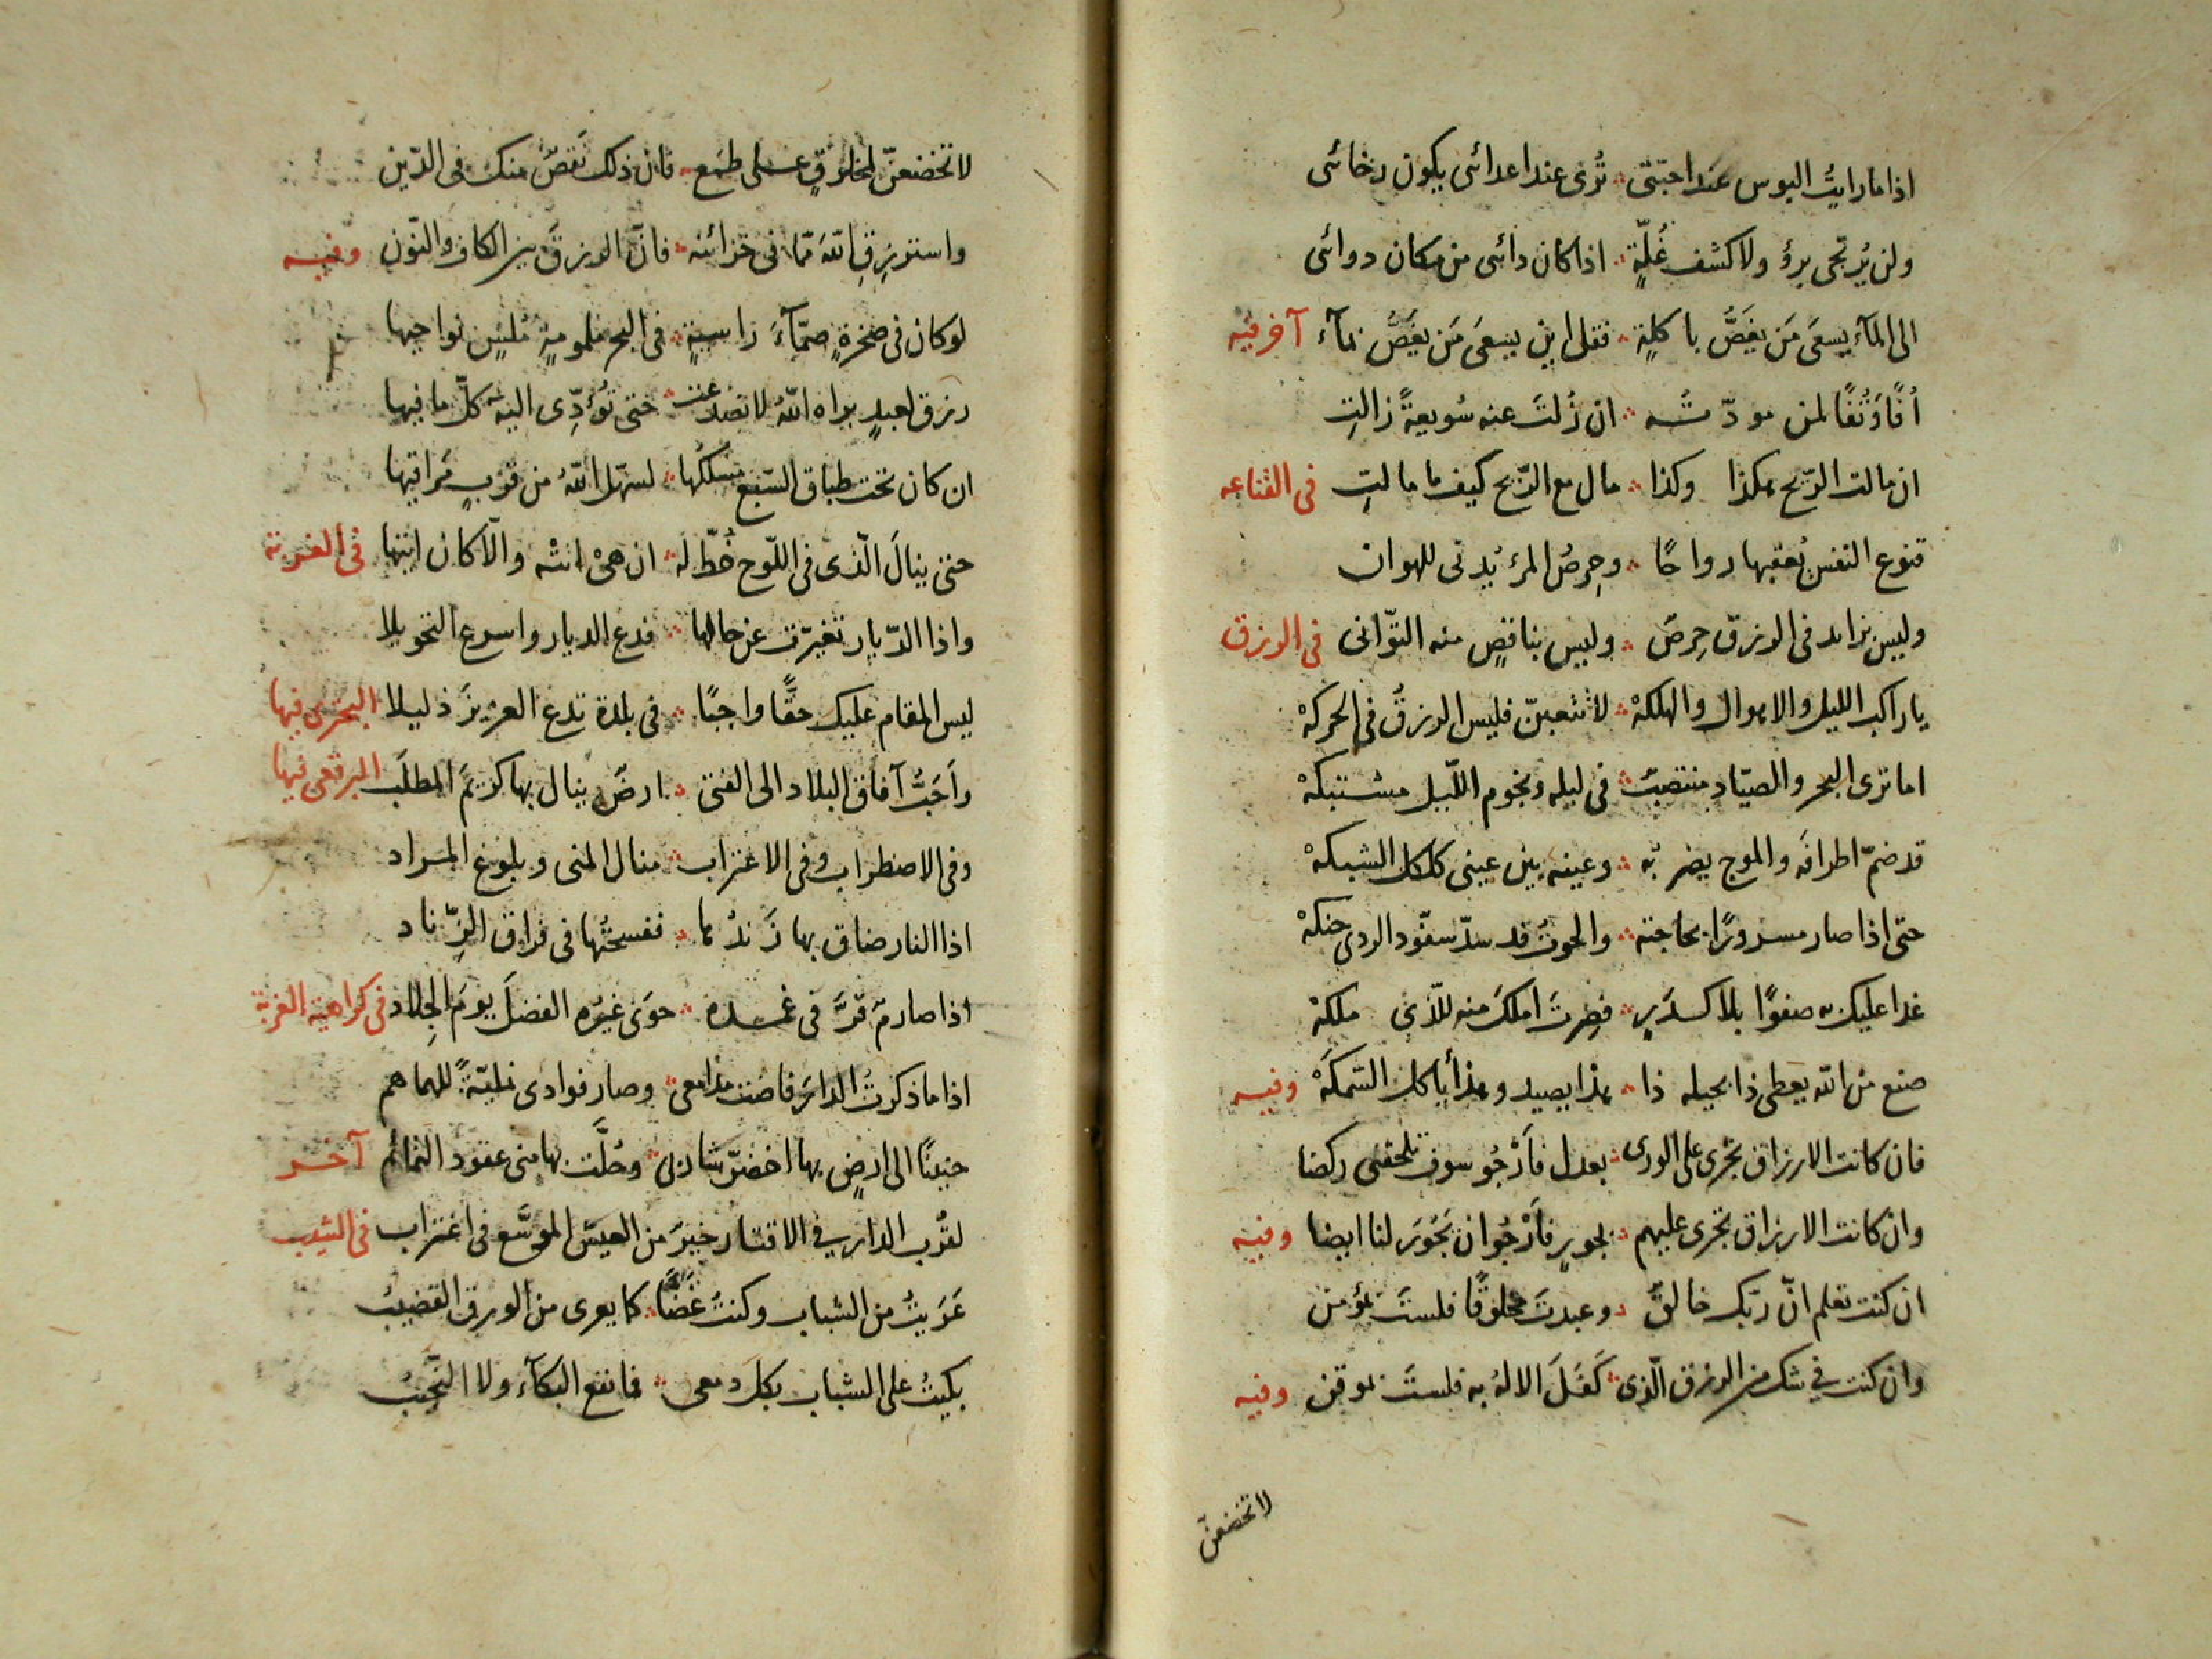 اذا ما رايتُ البوس عند احبّتى ؞ تُرى عند اعدائى يكون رخائى
ولن يُرتجى برؤ ولا كشف غُلّةٍ ؞ اذا كان دائى من مكان دوائى
الى المآء يسعَى مَن يغَصُّ باكلةٍ ؞ فقل اين يسعَى مَن يغَصُّ بمآء آخر فيه
اُفًّا وَتُفًّا لمن مودّتُـــه ؞ ان زُلتَ عنه سُويعةً زالتِ
ان مالت الرّيح هكذا وكذا ؞ مال مع الرّيح كيفما مالتِ فى القناعه
قنوع النفس يُعقبها رواحًا ؞ وحِرصُ المرء يُدنى للهوان
وليس بزايد فى الرزق حِرصٌ ؞ وليس بناقصٍ منه التوّانى فى الرزق
يا راكب الليل والاهوال والهلكهْ ؞ لا تتعبنّ فليس الرزقُ فى الحركهْ
اما ترى البحر والصيّاد منتصبٌ ؞ فى ليله ونجوم اللّيل مشتبكهْ
قد ضمّ اطرافَه والموج يضربُه ؞ وعينه بين عينى كلكل الشبكهْ
حتى اذا صار مسرورًا بحاجته ؞ والحوتُ قد سدّ سفّود الردى حنكهْ
غدا عليك به صفوًا بلا كـدَرٍ ؞ فصِرتَ املكَ منه للّذى ملكهْ
صنع من الله يعطى ذا بحيله ذا ؞ هذا يصيد وهذا ياكل السّمكَهْ وفيـه
فان كانت الارزاق تجرى على الورى ؞ بعدل فاَرْجُو سوف تلحقنى ركضا
وان كانت الارزاق تجرى عليهم ؞ بجورٍ فاَرْجُو ان تَجُورَ لنا ايضا وفيه
ان كنت تعلم انّ ربّك خالقٌ ؞ وعبدتَ مخلوقًا فلستَ بمؤمن
وان كنت فى شك من الرزق الّذى ؞ كَفَلَ الالهُ به فلستَ بموقن وفيه
لا تخضعنّ
لا تخضعنّ لمخلوقٍ على طمَع ؞ فان ذلك نَقصٌ منك فى الدّين
واسترزِقِ اللهَ ممّا فى خزائنه ؞ فانّ الرزقَ بين الكاف والنّون وفيـه
لو كان فى صخرةٍ صمّآءَ راسيةٍ ؞ فى البحر ملومةٍ مُلسٍ نواحيها
رزق لعبدٍ براه اللهُ لانصدعت ؞ حتى تُؤدِّى اليه كلّ ما فيها
ان كان تحت طباق السّبع مسلكُها ؞ لسهّل اللهُ من قربٍ مَراقيها
حتى ينالَ الّذى فى اللّوح خُطّ له ؞ ان هىْ اتتْه والّا كان اتيها فى الغربة
واذا الدّيار تغيرّت عن حالها ؞ فدع الديار واسرع التحويلا
ليس المقام عليك حقًّا واجبًا ؞ فى بلدة تدع العزيزَ ذليلا البحترى فيها
واَحَبُّ آفاق البلاد الى الفتى ؞ ارضٌ ينال بها كريمَ المطلَب البرقعى فيها
وفى الاضطراب وفى الاغتراب ؞ منال المنى وبلوغ المراد
اذا النار ضاق بها زَندُها ؞ ففسحتُها فى فراق الزِّناد
اذا صارمٌ قَرَّ فى غمـده ؞ حوَى غيرُه الفضلَ يومَ الجِلاد فى كراهية الغربة
اذا ما ذكرتُ الدارَ فاضت مدامعى ؞ وصار فوادى نهبةً للهماهم
حنينًا الى ارضٍ بها اخضرّ شاربى ؞ وحُلَّت بها منى عقود التمائم آخـر
لقُرب الدار فى الاقتار خيرٌ من العيش الموسَّع فى اغتراب فى الشيب
عَرَيتُ من الشباب وكنتُ غَضًّا ؞ كما يعرى من الورق القضيبُ
بكيتُ على الشباب بكل دمعى ؞ فما نفع البكآء ولا النَّحيبُ